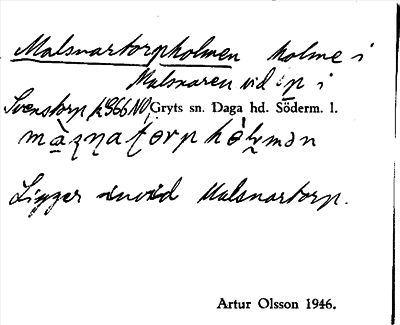 Malsnartorpholmen holme i
Malsnaren vid ep i
Svenstorp k966 NO, Gryts sn. Daga hd. Söderm. l.
Ligger invid Malsnartorp.
Artur Olsson 1946.